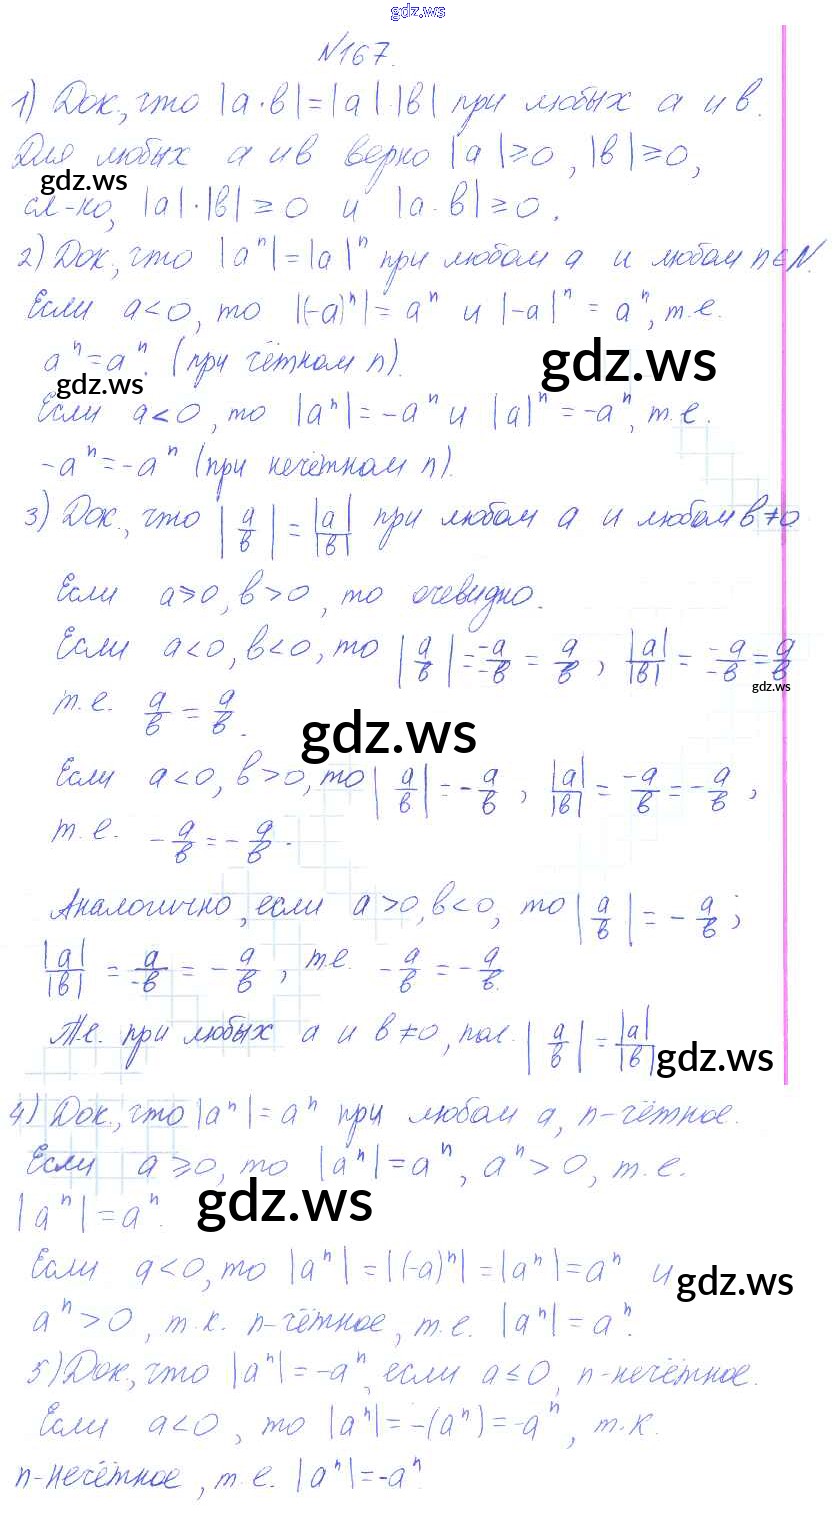 gdz.ws
№167.
1) Док., что |a·b|=|a|·|b| при любых a и b.
Для любых a и b верно |a|≥0, |b|≥0,
gdz.ws
сл-но, |a|·|b|≥0 и |a·b|≥0.
2) Док., что |aⁿ|=|a|ⁿ при любом a и любом n∈N.
Если a<0, то |(-a)ⁿ|=aⁿ и |-a|ⁿ=aⁿ, т.е.
aⁿ=aⁿ. (при чётном n).
gdz.ws
gdz.ws
Если a<0, то |aⁿ|=-aⁿ и |a|ⁿ=-aⁿ, т.е.
-aⁿ=-aⁿ (при нечётном n).
3) Док., что |a/b|=|a|/|b| при любом a и любом b≠0
Если a≥0, b>0, то очевидно.
Если a<0, b<0, то |a/b|=-a/-b=a/b, |a|/|b|=-a/-b=a/b
gdz.ws
т.е. a/b=a/b.
gdz.ws
Если a<0, b>0, то |a/b|=-a/b, |a|/|b|=-a/b=-a/b,
т.е. -a/b=-a/b.
Аналогично, если a>0, b<0, то |a/b|=-a/b;
|a|/|b|=a/-b=-a/b, т.е. -a/b=-a/b.
Т.е. при любых a и b≠0, пол. |a/b|=|a|/|b|
gdz.ws
4) Док., что |aⁿ|=aⁿ при любом a, n-чётное.
Если a≥0, то |aⁿ|=aⁿ, aⁿ>0, т.е.
|aⁿ|=aⁿ.
gdz.ws
Если a<0, то |aⁿ|=|(-a)ⁿ|=|aⁿ|=aⁿ и
gdz.ws
aⁿ>0, т.к. n-чётное, т.е. |aⁿ|=aⁿ.
5) Док., что |aⁿ|=-aⁿ, если a≤0, n-нечётное.
Если a<0, то |aⁿ|=-(aⁿ)=-aⁿ, т.к.
n-нечётное, т.е. |aⁿ|=-aⁿ.